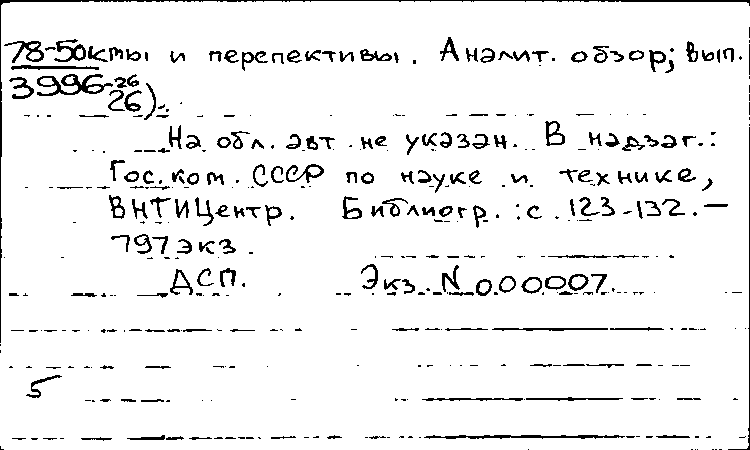 78-50кты и перспективы. Аналит. обзор; Вып.
3996-26
26).
На обл. авт. не указан. В надзаг.:
Гос. ком. СССР по науке и технике,
ВНТИЦентр. Библиогр.: с. 123-132. —
797 экз.
ДСП. Экз. N 000007.
5